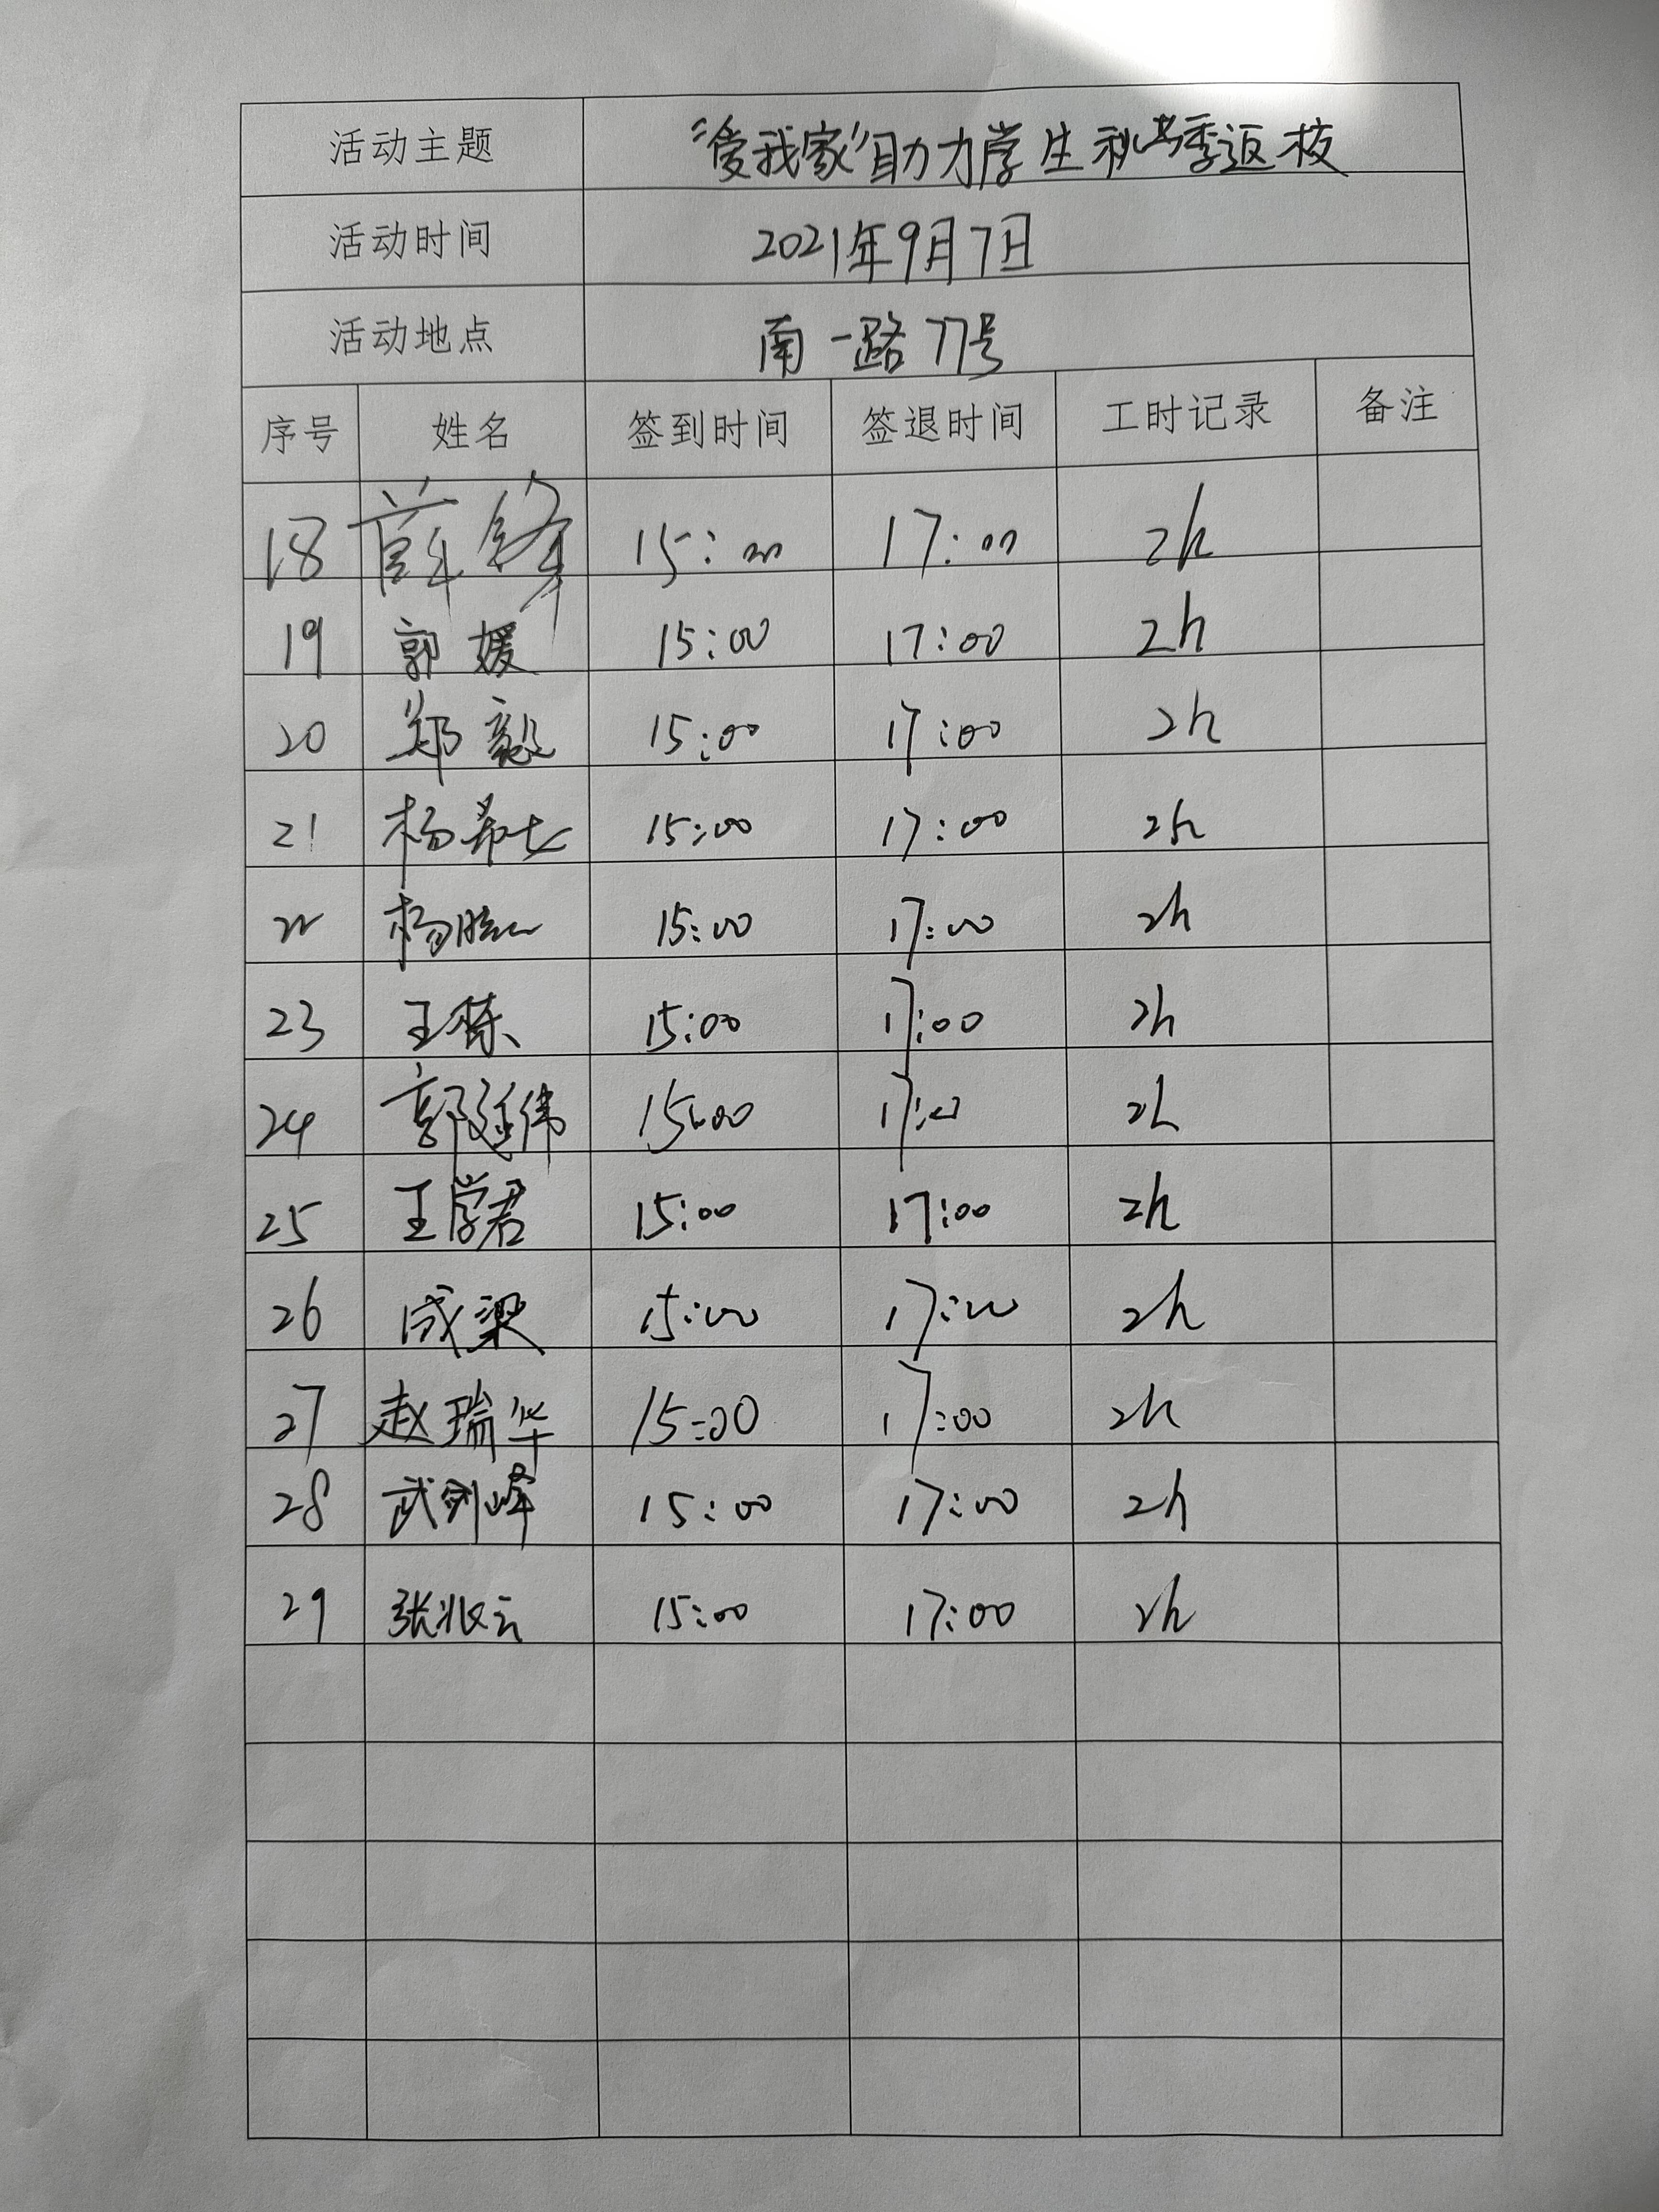 活动主题 "爱我家"助力学生秋季返校
活动时间 2021年9月7日
活动地点 南一路77号
序号 姓名 签到时间 签退时间 工时记录 备注
18 薛锋 15:00 17:00 2h
19 郭媛 15:00 17:00 2h
20 郑毅 15:00 17:00 2h
21 杨 15:00 17:00 2h
22 杨 15:00 17:00 2h
23 王栋 15:00 17:00 2h
24 郭延伟 15:00 17:00 2h
25 王学君 15:00 17:00 2h
26 成梁 15:00 17:00 2h
27 赵瑞华 15:00 17:00 2h
28 武剑峰 15:00 17:00 2h
29 张兆云 15:00 17:00 2h